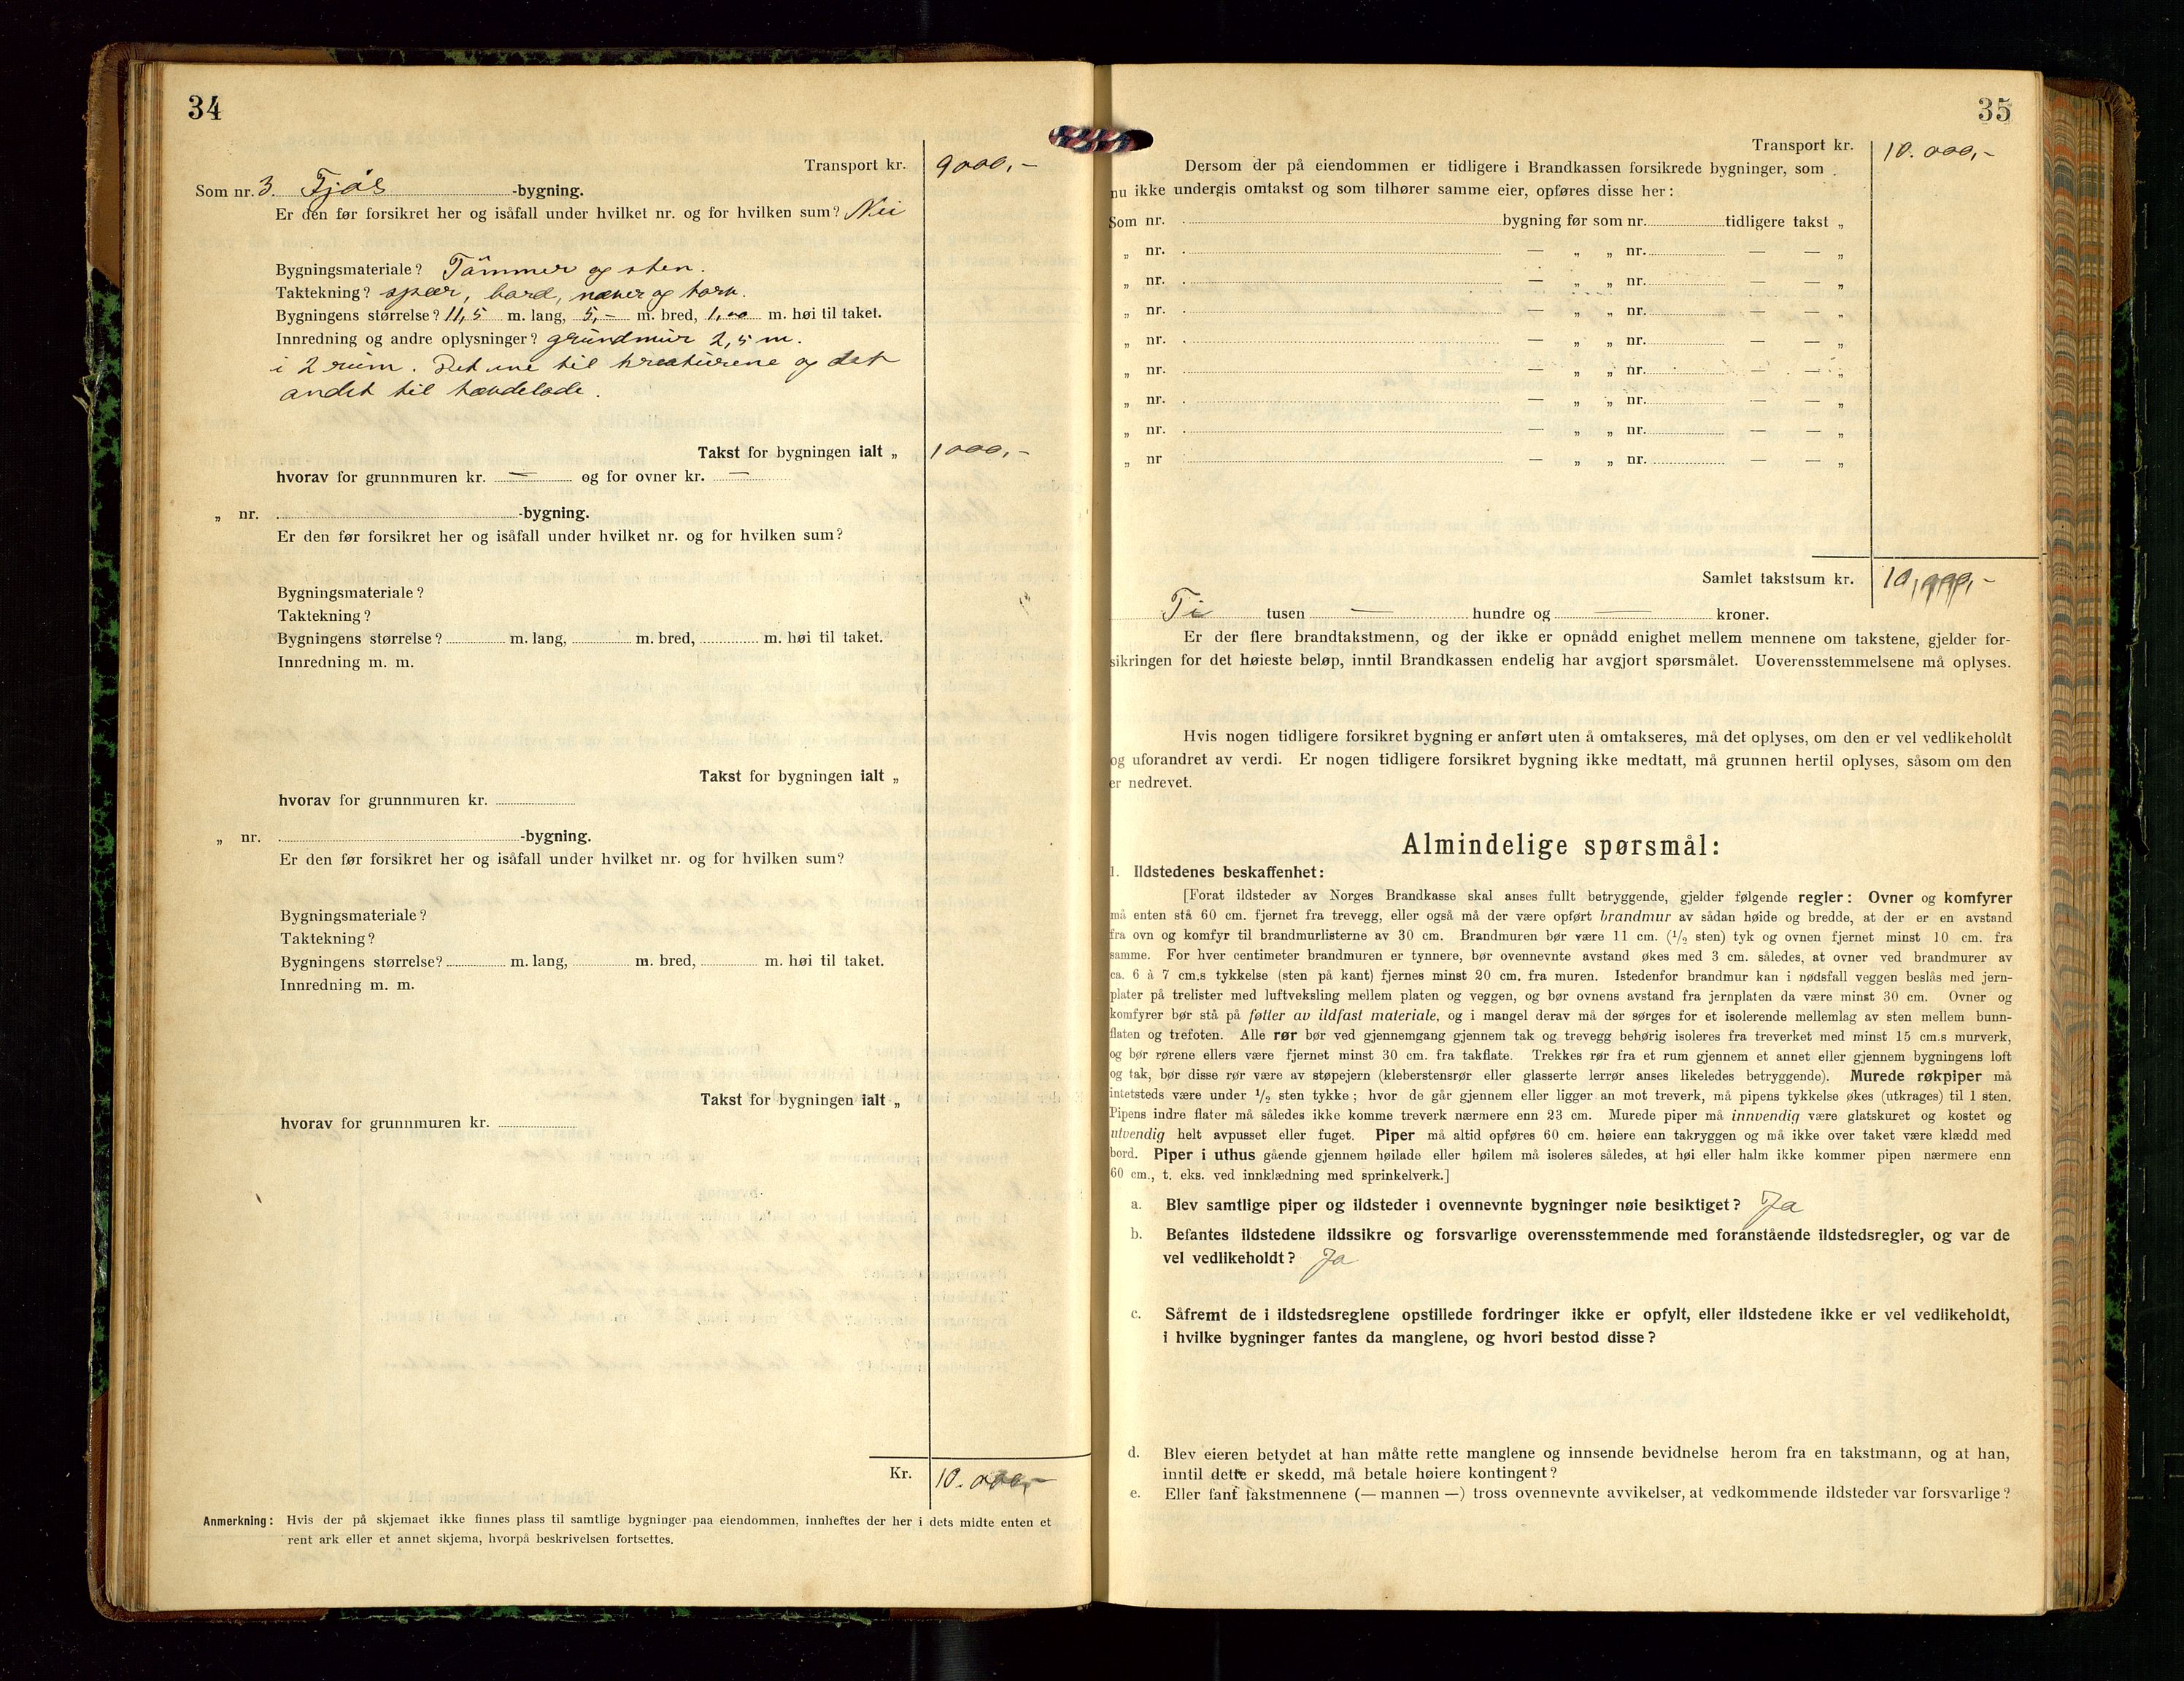 34
Transport kr. 9000,-
Som nr. 3. Fjøs -bygning.
Er den før forsikret her og isåfall under hvilket nr. og for hvilken sum? Nei
Bygningsmateriale? Tømmer og sten.
Taktekning? spær, bord, næver og torv.
Bygningens størrelse? 11,5 m. lang, 5,- m. bred, 1,00 m. høi til taket.
Innredning og andre oplysninger? grundmur 2,5 m.
i 2 rum. Det ene til kreaturene og det
andet til tændelade.
Takst for bygningen ialt „ 1000,-
hvorav for grunnmuren kr. — og for ovner kr. —
„ nr. -bygning.
Er den før forsikret her og isåfall under hvilket nr. og for hvilken sum?
Bygningsmateriale?
Taktekning?
Bygningens størrelse? m. lang, m. bred, m. høi til taket.
Innredning m. m.
Takst for bygningen ialt „
hvorav for grunnmuren kr.
„ nr. -bygning.
Er den før forsikret her og isåfall under hvilket nr. og for hvilken sum?
Bygningsmateriale?
Taktekning?
Bygningens størrelse? m. lang, m. bred, m. høi til taket.
Innredning m. m.
Takst for bygningen ialt „
hvorav for grunnmuren kr.
Kr. 10.000,-
Anmerkning: Hvis der på skjemaet ikke finnes plass til samtlige bygninger paa eiendommen, innheftes der her i dets midte enten et
rent ark eller et annet skjema, hvorpå beskrivelsen fortsettes.
35
Transport kr. 10.000,-
Dersom der på eiendommen er tidligere i Brandkassen forsikrede bygninger, som
nu ikke undergis omtakst og som tilhører samme eier, opføres disse her:
Som nr. bygning før som nr. tidligere takst „
„ nr. — „ „ nr. — — „
„ nr. — „ „ nr. — — „
„ nr. — „ „ nr. — — „
„ nr. — „ „ nr. — — „
„ nr. — „ „ nr. — — „
„ nr. — „ „ nr. — — „
„ nr. — „ „ nr. — — „
„ nr — „ „ nr. — — „
Samlet takstsum kr. 10,000,-
Ti tusen — hundre og — kroner.
Er der flere brandtakstmenn, og der ikke er opnådd enighet mellem mennene om takstene, gjelder for-
sikringen for det høieste beløp, inntil Brandkassen endelig har avgjort spørsmålet. Uoverensstemmelsene må oplyses.
Hvis nogen tidligere forsikret bygning er anført uten å omtakseres, må det oplyses, om den er vel vedlikeholdt
og uforandret av verdi. Er nogen tidligere forsikret bygning ikke medtatt, må grunnen hertil oplyses, såsom om den
er nedrevet.
Almindelige spørsmål:
1. Ildstedenes beskaffenhet:
[Forat ildsteder av Norges Brandkasse skal anses fullt betryggende, gjelder følgende regler: Ovner og komfyrer
må enten stå 60 cm. fjernet fra trevegg, eller også må der være opført brandmur av sådan høide og bredde, at der er en avstand
fra ovn og komfyr til brandmurlisterne av 30 cm. Brandmuren bør være 11 cm. (1/2 sten) tyk og ovnen fjernet minst 10 cm. fra
samme. For hver centimeter brandmuren er tynnere, bør ovennevnte avstand økes med 3 cm. således, at ovner ved brandmurer av
ca. 6 à 7 cm.s tykkelse (sten på kant) fjernes minst 20 cm. fra muren. Istedenfor brandmur kan i nødsfall veggen beslås med jern-
plater på trelister med luftveksling mellem platen og veggen, og bør ovnens avstand fra jernplaten da være minst 30 cm. Ovner og
komfyrer bør stå på føtter av ildfast materiale, og i mangel derav må der sørges for et isolerende mellemlag av sten mellem bunn-
flaten og trefoten. Alle rør bør ved gjennemgang gjennem tak og trevegg behørig isoleres fra treverket med minst 15 cm.s murverk,
og bør rørene ellers være fjernet minst 30 cm. fra takflate. Trekkes rør fra et rum gjennem et annet eller gjennem bygningens loft
og tak, bør disse rør være av støpejern (kleberstensrør eller glasserte lerrør anses likeledes betryggende). Murede røkpiper må
intetsteds være under 1/2 sten tykke; hvor de går gjennem eller ligger an mot treverk, må pipens tykkelse økes (utkrages) til 1 sten.
Pipens indre flater må således ikke komme treverk nærmere enn 23 cm. Murede piper må innvendig være glatskuret og kostet og
utvendig helt avpusset eller fuget. Piper må altid opføres 60 cm. høiere enn takryggen og må ikke over taket være klædd med
bord. Piper i uthus gående gjennem høilade eller høilem må isoleres således, at høi eller halm ikke kommer pipen nærmere enn
60 cm., t. eks. ved innklædning med sprinkelverk.]
a. Blev samtlige piper og ildsteder i ovennevnte bygninger nøie besiktiget? Ja
b. Befantes ildstedene ildssikre og forsvarlige overensstemmende med foranstående ildstedsregler, og var de
vel vedlikeholdt? Ja
c. Såfremt de i ildstedsreglene opstillede fordringer ikke er opfylt, eller ildstedene ikke er vel vedlikeholdt,
i hvilke bygninger fantes da manglene, og hvori bestod disse?
d. Blev eieren betydet at han måtte rette manglene og innsende bevidnelse herom fra en takstmann, og at han,
inntil dette er skedd, må betale høiere kontingent?
e. Eller fant takstmennene (— mannen —) tross ovennevnte avvikelser, at vedkommende ildsteder var forsvarlige?